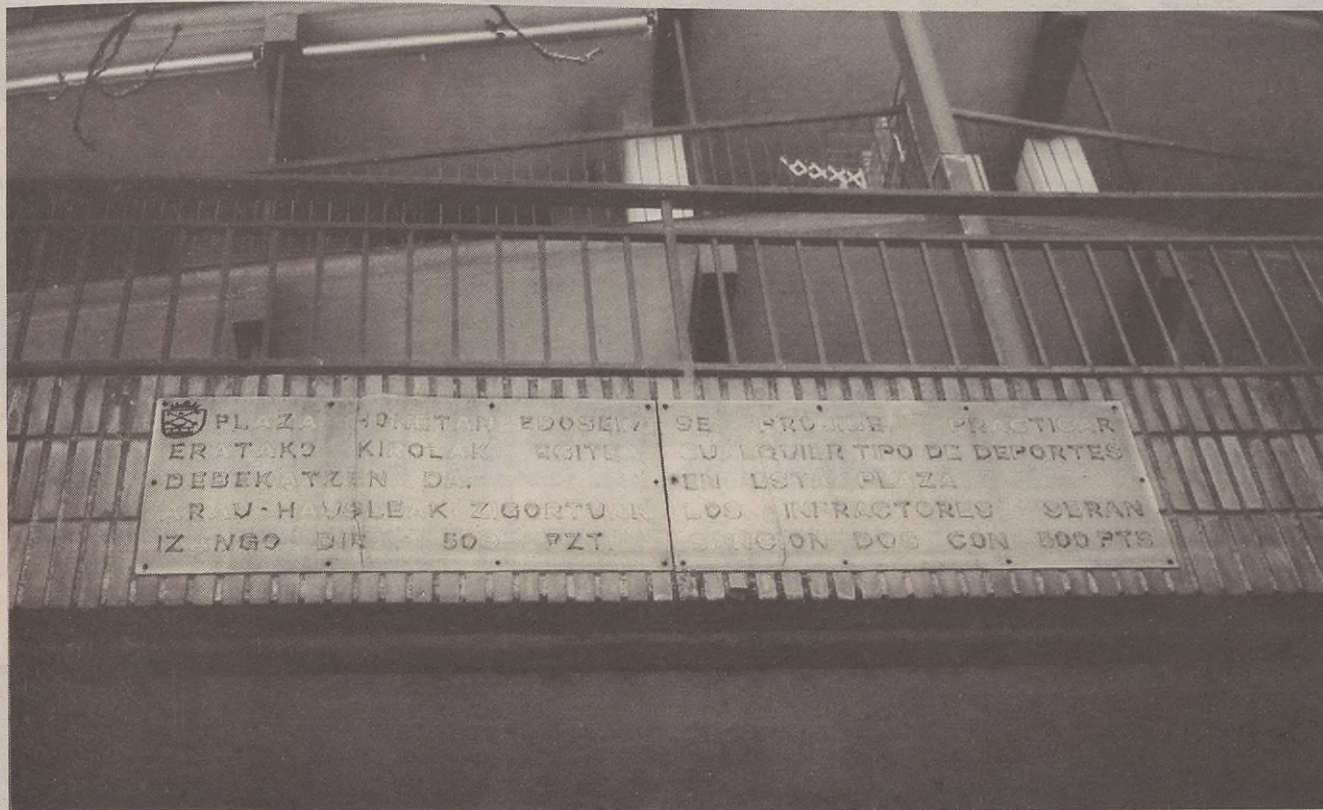 PLAZA HONETAN EDOSEIN
ERATAKO KIROLAK EGITEA
DEBEKATZEN DA.
ARAU-HAUSLEAK ZIGORTUAK
IZANGO DIRA 500 PZT.
SE PROHIBE PRACTICAR
CUALQUIER TIPO DE DEPORTES
EN ESTA PLAZA
LOS INFRACTORES SERAN
SANCIONADOS CON 500 PTS